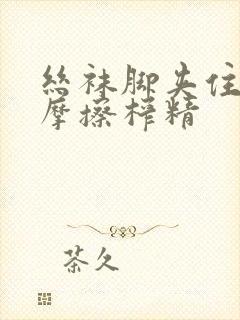 丝袜脚夹住
摩擦榨精
茶久